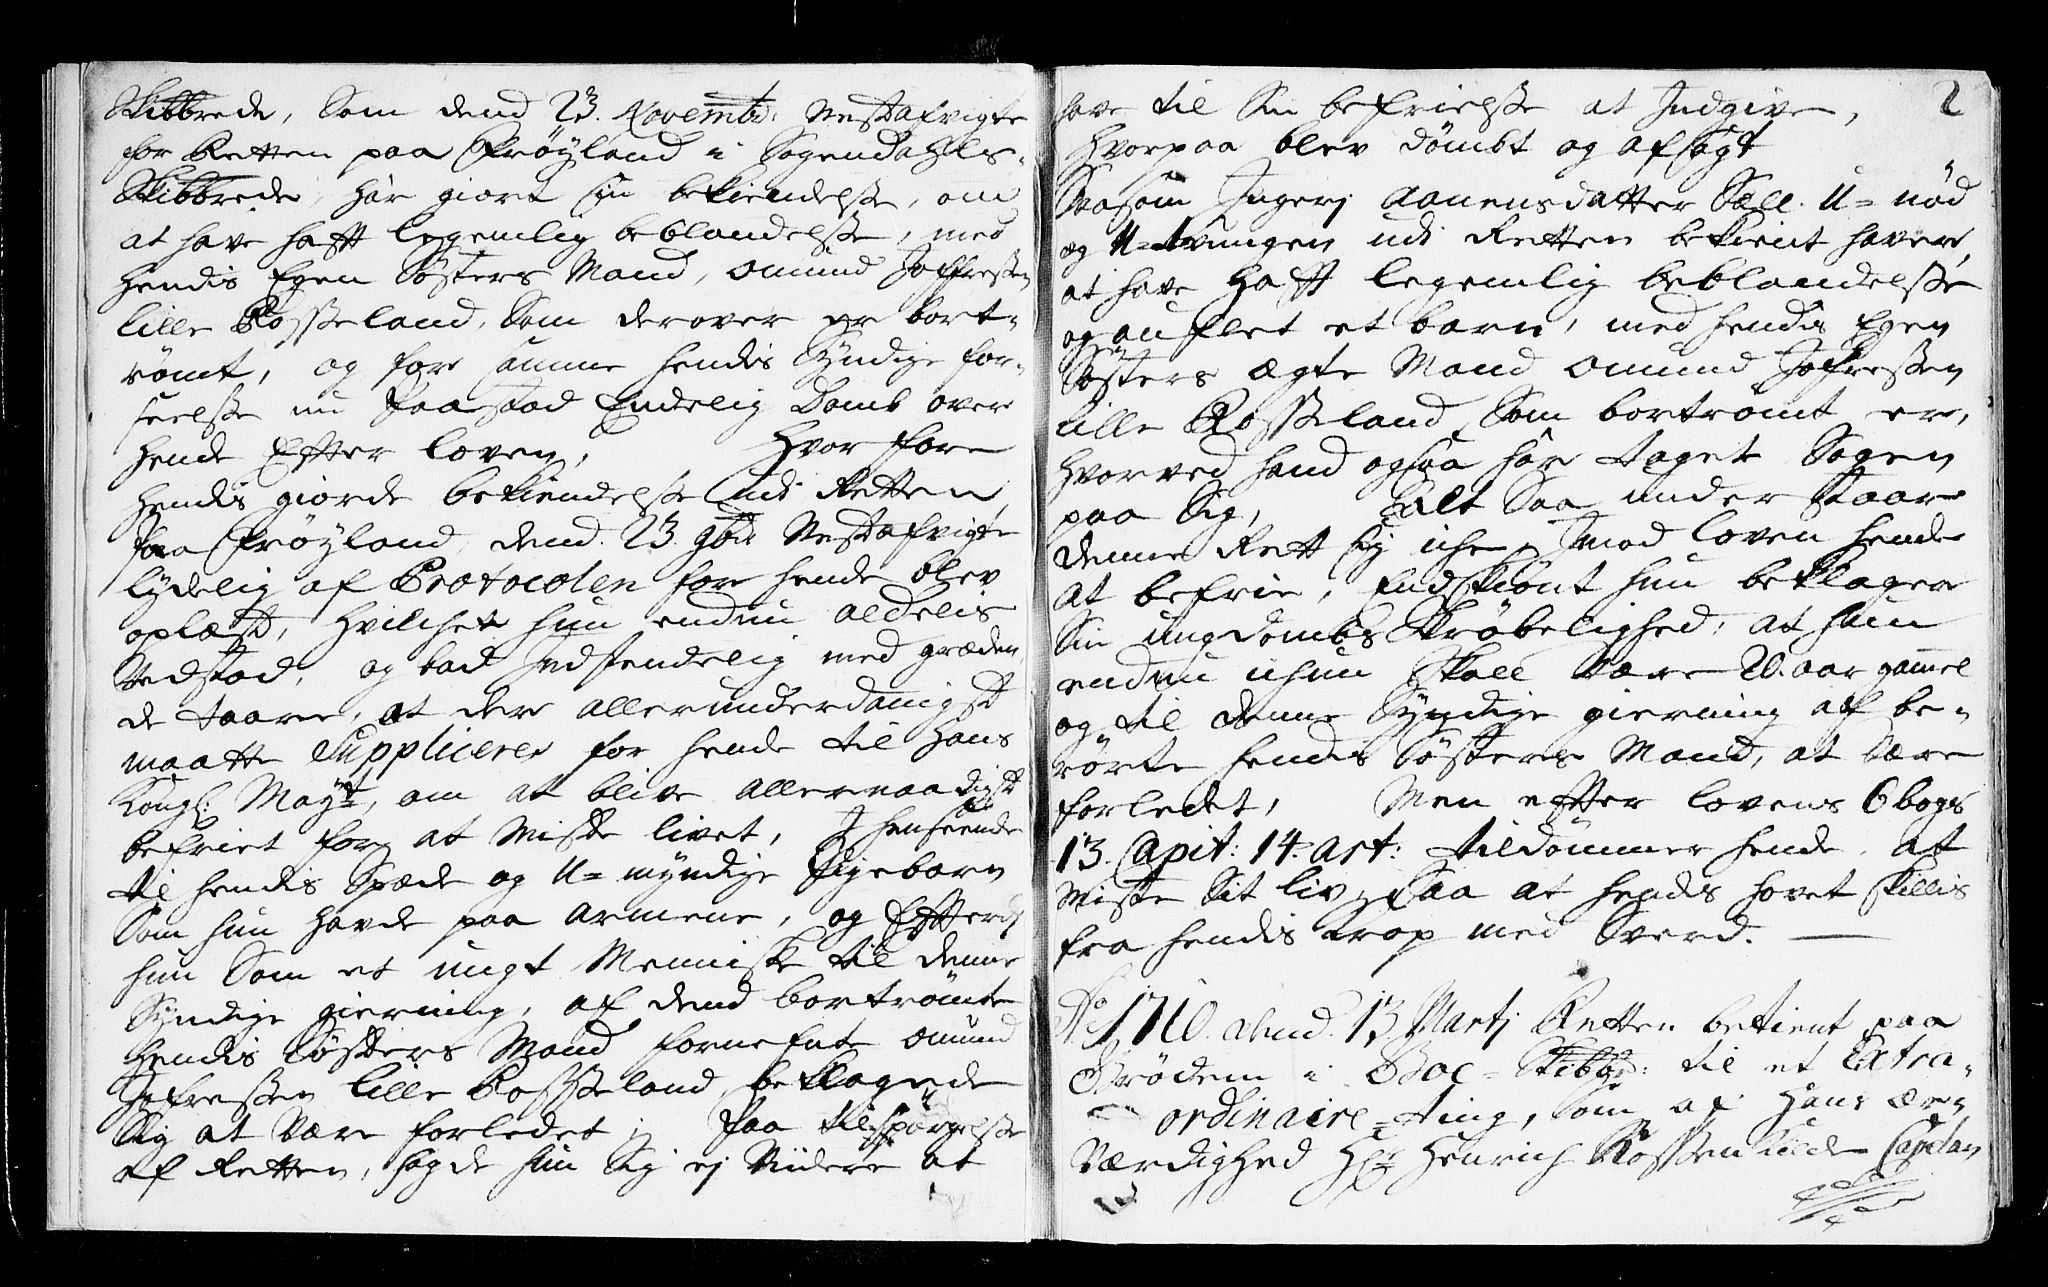 Skibbrede, Som dend 23. Novembr: Nestafvigte
for Retten paa Frøyland i Sogendahls-
Skibbrede, har giort sin bekiendelsse, om
at have hafft legemlig beblandelsse, med
hendis Egen Søsters Mand, Omund Joffressen
lille Rosseland, Som derover er bort-
rømt, og for samme hendis Syndige for-
seelsse nu paastod Endelig Domb over
hende Efter loven, Hvor fore
hendis giorde bekiendelsse udi Retten
paa Frøyland, dend. 23. 9br Nestafvigte
lydelig af Protocolen for hende blev
oplæst, hvilchet hun endnu aldelis
Vedstod, og bad Indstendelig med græden
de taare, at der allerunderdanigst
maatte Suppliceres for hende til Hans
Kongl: Mayt, om at blive allernaadigst
befriet for at Miste livet, J henseende
til hendis Spæde og U=myndige Pigebarn
Som hun havde paa armene, og Efterdj
hun Som et ungt Menniske til denne
Syndige gierning, af dend bortrømte
Hendis Søsters Mand fornefnte Omund
Jofressen lille Rosseland, beklagede
Sig at Være forledet; Paa tilspørgelsse
af Retten, sagde hun Sig ej Viidere at
2
have til Sin befrielsse at Indgive,
Hvorpaa blev dømbt og afsagt
Saasom Ingerj Aanensdatter Sæll. U=nød
og U=tvungen udi Retten bekient haver,
at have hafft legemlig beblandelsse
og auflet et barn, med hendis Egen
Søsters ægte Mand Omund Jofressen
lille Rosseland, Som bortrømt er,
hvorved hand ogsaa har taget Sagen
paa Sig, Ealt Saa under staar
denne Rett sig iche, Imod loven hende
at befrie, Endskiønt hun beklager
Sin ungdombs Skrøbelighed, at hun
endnu iche skall være 20. aar gammel
og til denne Syndige gierning af be-
rørte hendis Søsters Mand, at være
forledet, Men efter lovens 6 bogs
13. Capit: 14. art: tildømmer hende, at
Miste Sit liv, Saa at hendis hovet skillis
fra hendis krop med Sverd.
Ao 1710. dend. 13 Martj Retten betient paa
Strødem i Boe=Skibbr: til et Extra-
ordinaire=ting, Som af Hans ær-
Værdighed Hr Henrich Rossen Capelan